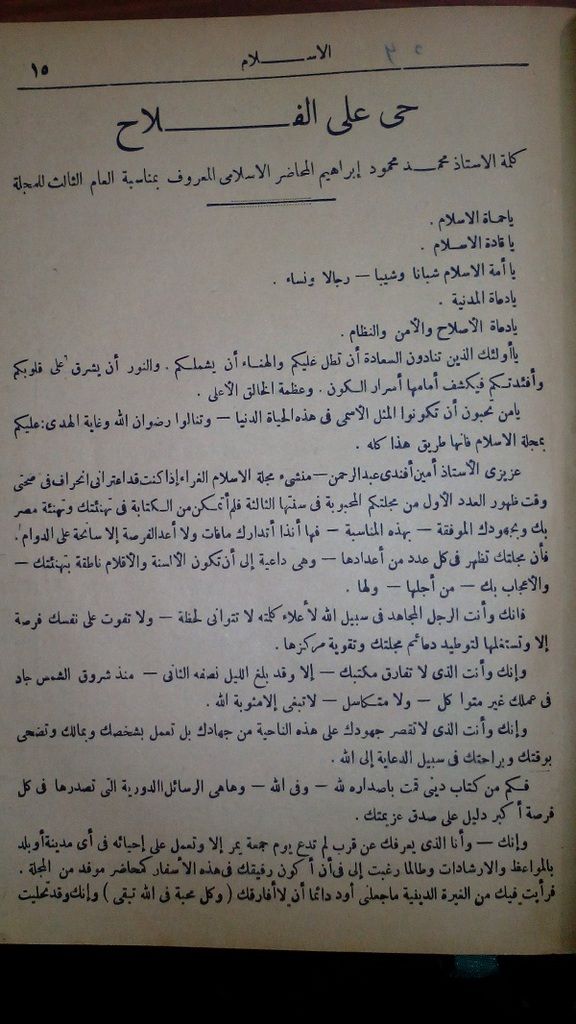 الاســـلام
١٥
حى على الفـــــــلاح
كلمة الاستاذ محمـــد محمود إبراهيم المحاضر الاسلامى المعروف بمناسبة العام الثالث للمجلة
ياحماة الاسلام .
يا قادة الاســلام .
يا أمة الاسلام شبانا وشيبا — رجالا ونساء .
يادعاة المدنية .
يادعاة الأصلاح والأمن والنظام .
ياأولئك الذين تنادون السعادة أن تطل عليكم والهنـاء أن يشملـكم . والنور أن يشرق على قلوبكم
وأفئدتـكم فيكشف أمامها أسرار الـكون . وعظمة الخالق الأعلى .
يامن تحبون أن تكونوا المثل الأسمى فى هذه الحياة الدنيا — وتنالوا رضوان الله وغاية الهدى : عليكم
بمجلة الاسلام فانها طريق هذا كله .
عزيزى الأستاذ أمين أفندى عبدالرحمن — منشىء مجلة الاسلام الغراء إذا كنت قد اعترانى انحراف فى صحتى
وقت ظهور العدد الأول من مجلتكم المحبوبة فى سنتها الثالثة فلم أتمـكن من الـكتابة فى تهنئتك وتهنئة مصر
بك وبجهودك الموفقة — بهذه المناسبة — فها أنذا أتدارك مافات ولا أعد الفرصة إلا سانحة على الدوام .
فأن مجلتك تظهر فى كل عدد من أعدادها — وهى داعية إلى أن تكون الألسنة والأقلام ناطقة بتهنئتك —
والاعجاب بك — من أجلها — ولها .
فانك وأنت الرجل المجاهد فى سبيل الله لأعلاء كلمته لا تتوانى لحظة — ولا تفوت على نفسك فرصة
إلا وتستغلها لتوطيد دعائم مجلتك وتقوية مركزها .
وإنك وأنت الذى لا تفارق مكتبك — إلا وقد بلغ الليل نصفه الثانى — منذ شروق الشمس جاد
فى عملك غير متوا كل — ولا متـكاسل — لاتبغى إلامثوبة الله .
وإنك وأنت الذى لاتقصر جهودك على هذه الناحية من جهادك بل تعمل بشخصك وبمالك وتضحى
بوقتك وبراحتك فى سبيل الدعاية إلى الله .
فـكم من كتاب دينى قمت باصداره لله — وفى الله — وهاهى الرسائل الدورية التى تصدرها فى كل
فرصة أ كبر دليل على صدق عزيمتك .
وإنك — وأنا الذى يعرفك عن قرب لم تدع يوم جمعة يمر إلا وتعمل على إحيائه فى أى مدينة أو بلد
بالمواعظ والارشادات وطالما رغبت إلى فى أن أ كون رفيقك فى هذه الأسفار كمحاضر موفد من المجلة .
فرأيت فيك من الغيرة الدينية ماجعلنى أود دائما أن لا أفارقك ( وكل محبة فى الله تبقى ) وإنك وقد تحليت